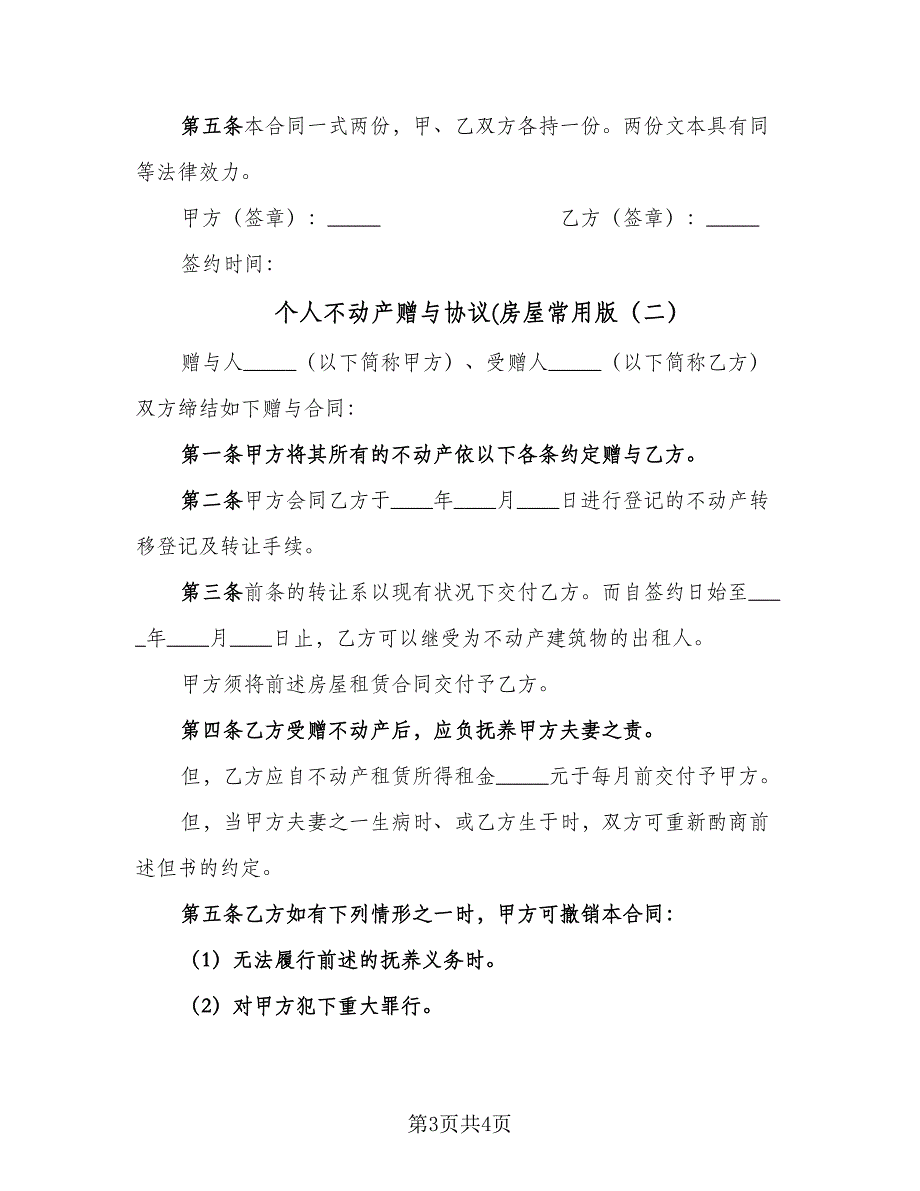 第五条本合同一式两份，甲、乙双方各持一份。两份文本具有同
等法律效力。
甲方（签章）：_____ 乙方（签章）：_____
签约时间：
个人不动产赠与协议(房屋常用版（二）
赠与人_____（以下简称甲方）、受赠人_____（以下简称乙方）
双方缔结如下赠与合同：
第一条甲方将其所有的不动产依以下各条约定赠与乙方。
第二条甲方会同乙方于____年____月____日进行登记的不动产转
移登记及转让手续。
第三条前条的转让系以现有状况下交付乙方。而自签约日始至___
_年____月____日止，乙方可以继受为不动产建筑物的出租人。
甲方须将前述房屋租赁合同交付予乙方。
第四条乙方受赠不动产后，应负抚养甲方夫妻之责。
但，乙方应自不动产租赁所得租金_____元于每月前交付予甲方。
但，当甲方夫妻之一生病时、或乙方生于时，双方可重新酌商前
述但书的约定。
第五条乙方如有下列情形之一时，甲方可撤销本合同：
（1）无法履行前述的抚养义务时。
（2）对甲方犯下重大罪行。
第3页共4页